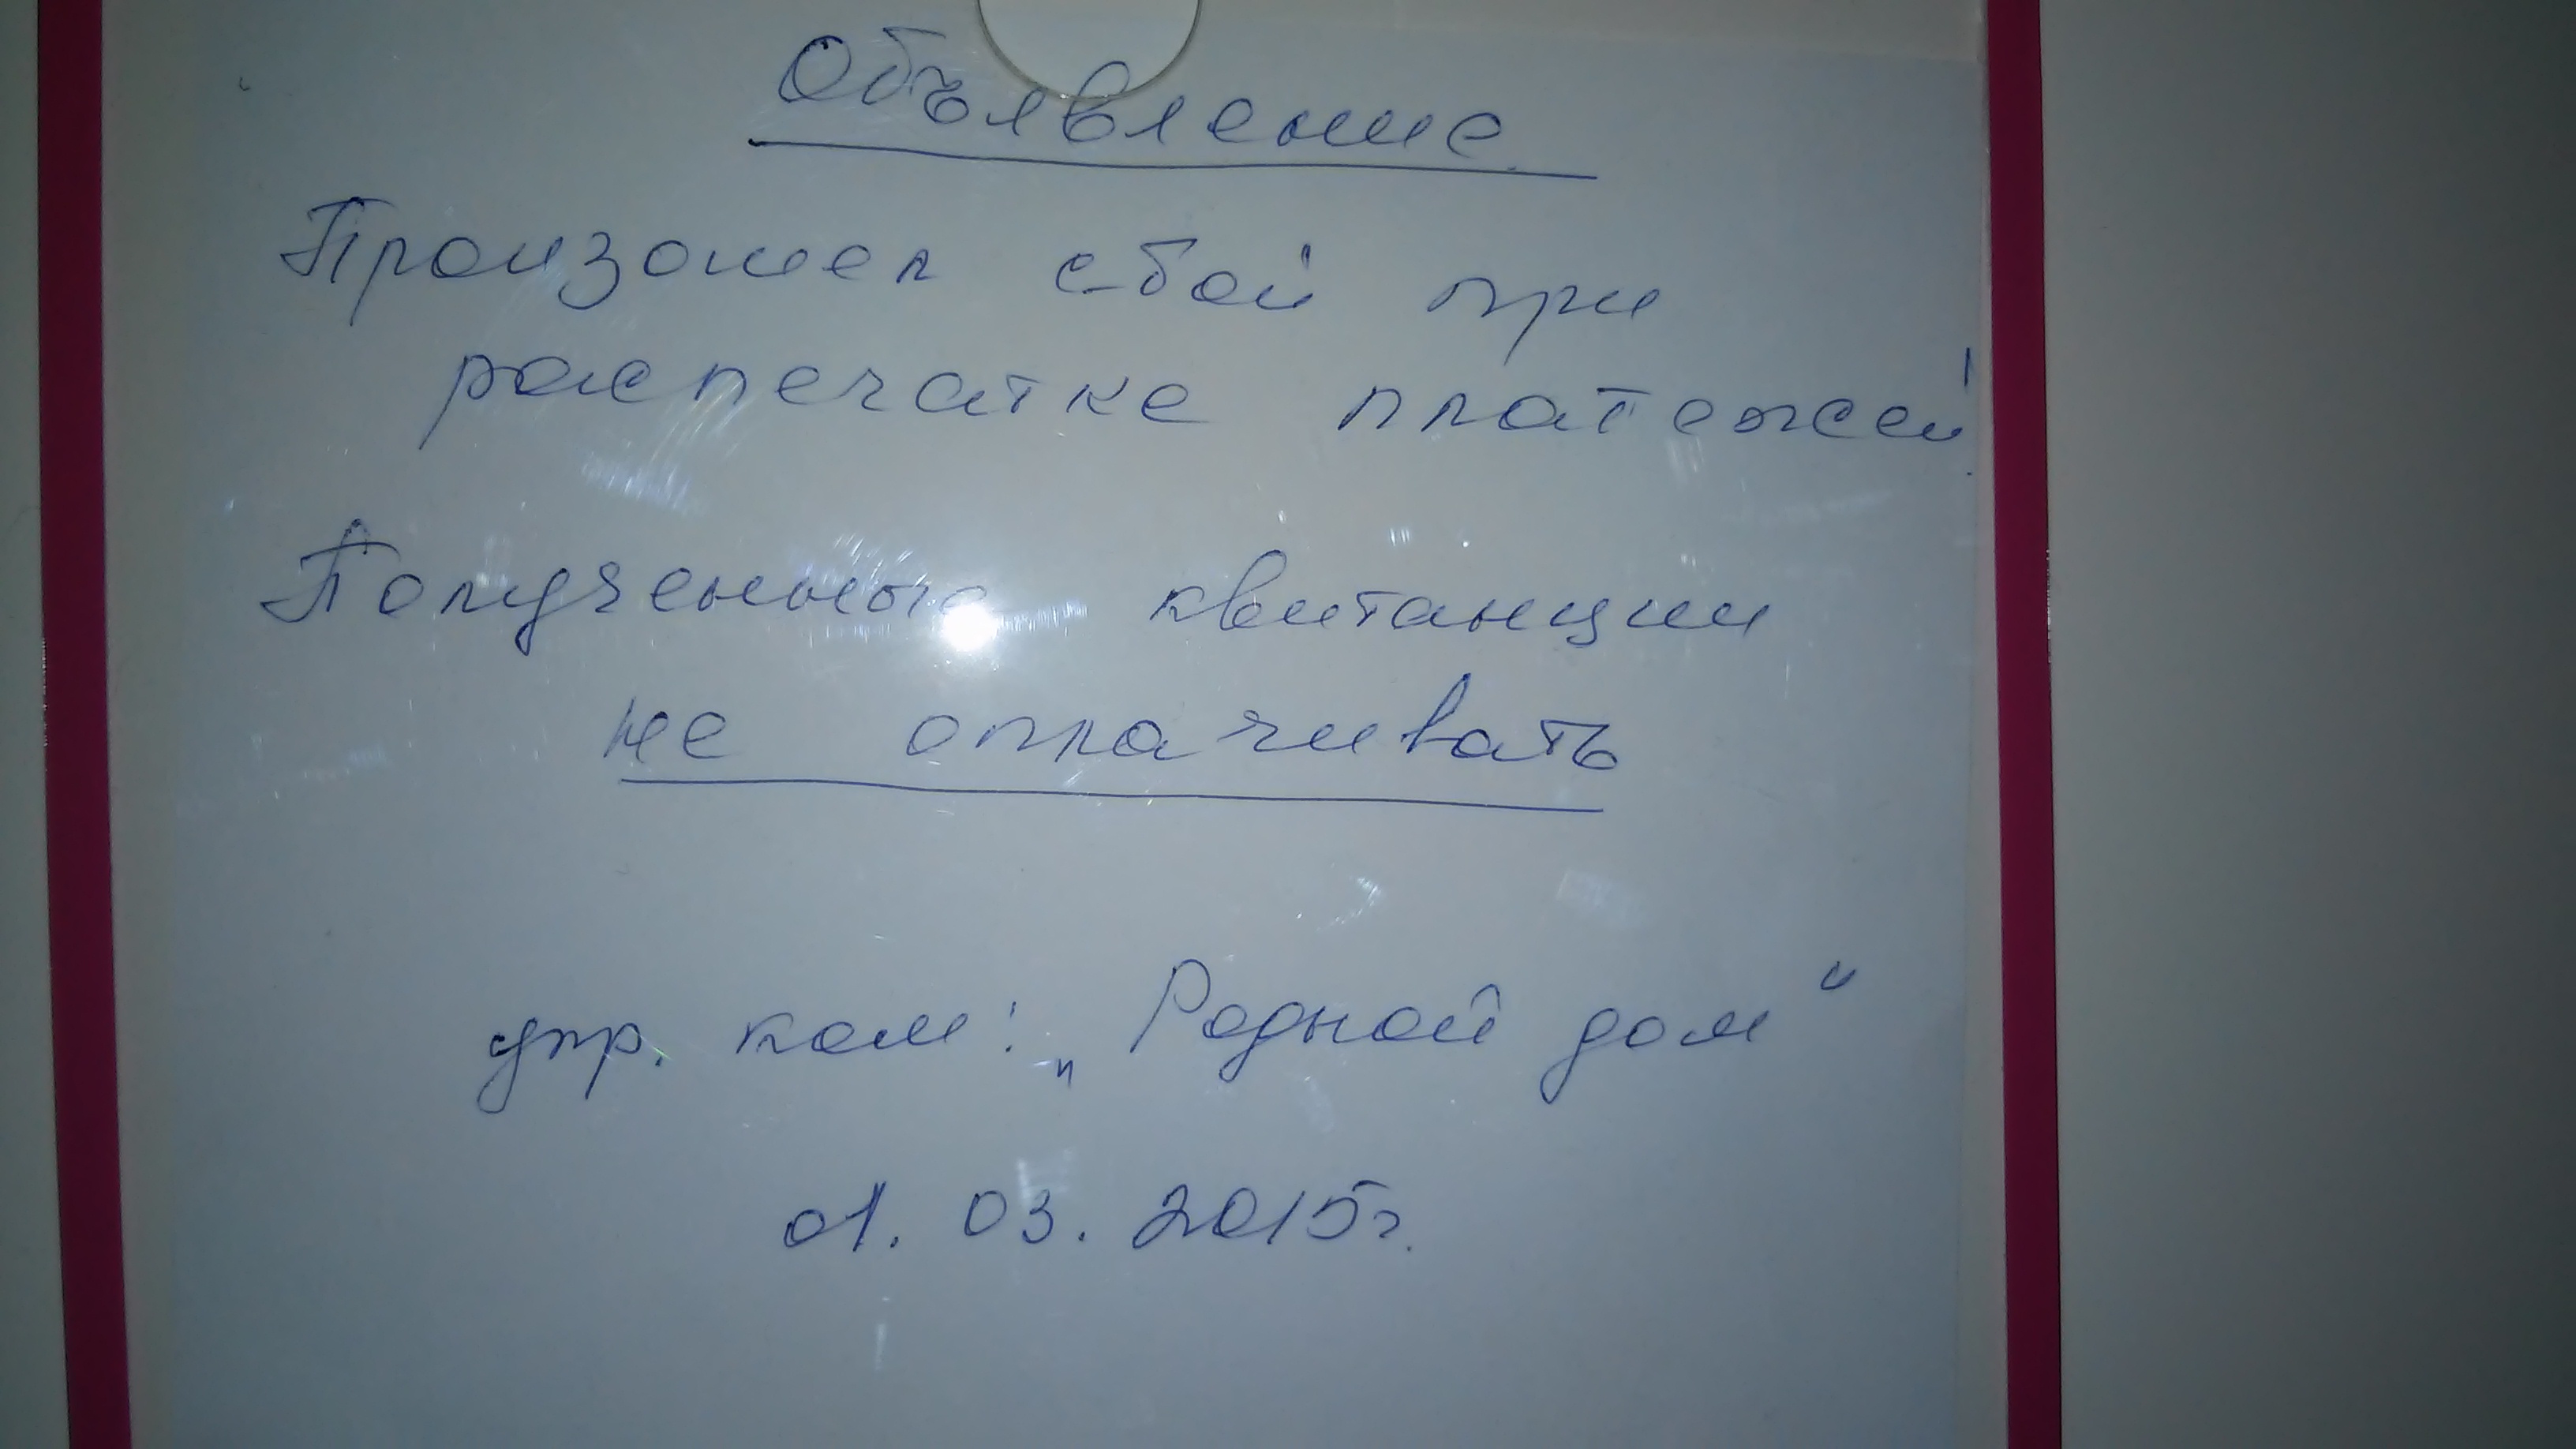 Объявление
Произошел сбой при
распечатке платежей.
Полученные квитанции
не оплачивать
упр. ком: „Родной дом“
01. 03. 2015г.